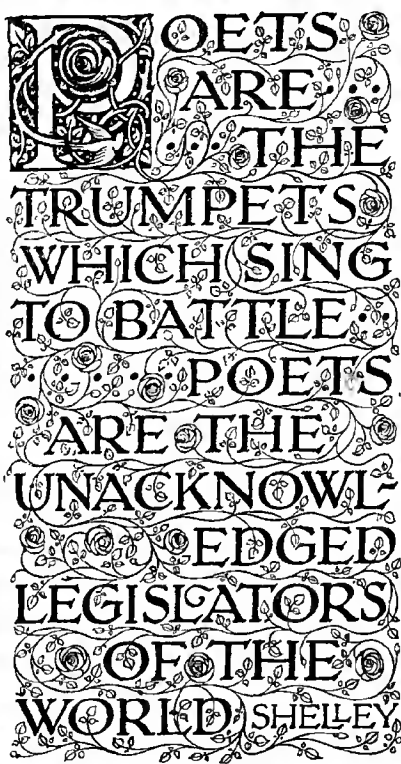 POETS
ARE
THE
TRUMPETS
WHICH SING
TO BATTLE:
POETS
ARE THE
UNACKNOWL-
EDGED
LEGISLATORS
OF THE
WORLD. SHELLEY